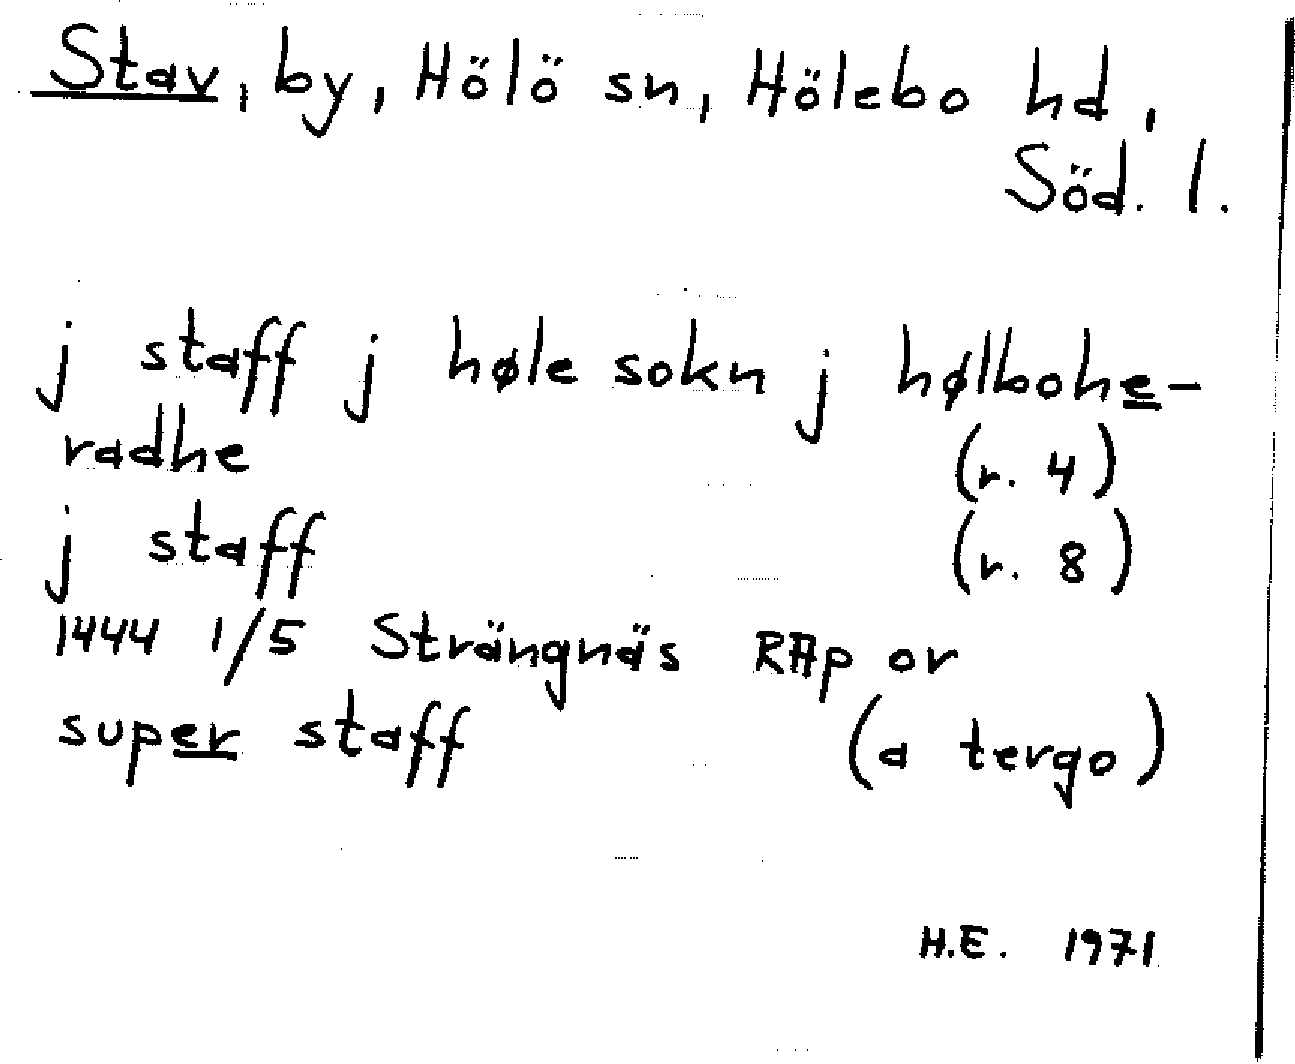 Stav, by, Hölö sn, Hölebo hd,
Söd. l.
j staff j høle sokn j hølbohe-
radhe (r. 4)
j staff (r. 8)
1444 1/5 Strängnäs RAp or
super staff (a tergo)
H.E. 1971